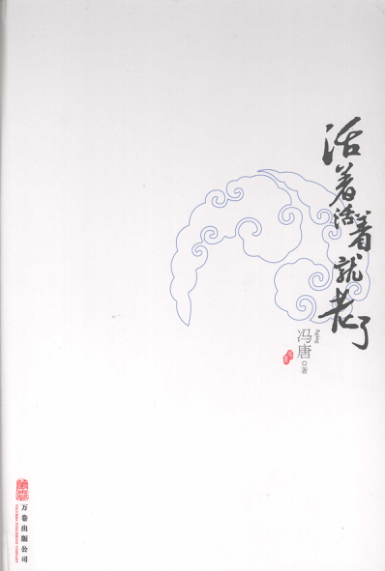 活着活着就老了
Aging
冯唐○著
万卷出版公司